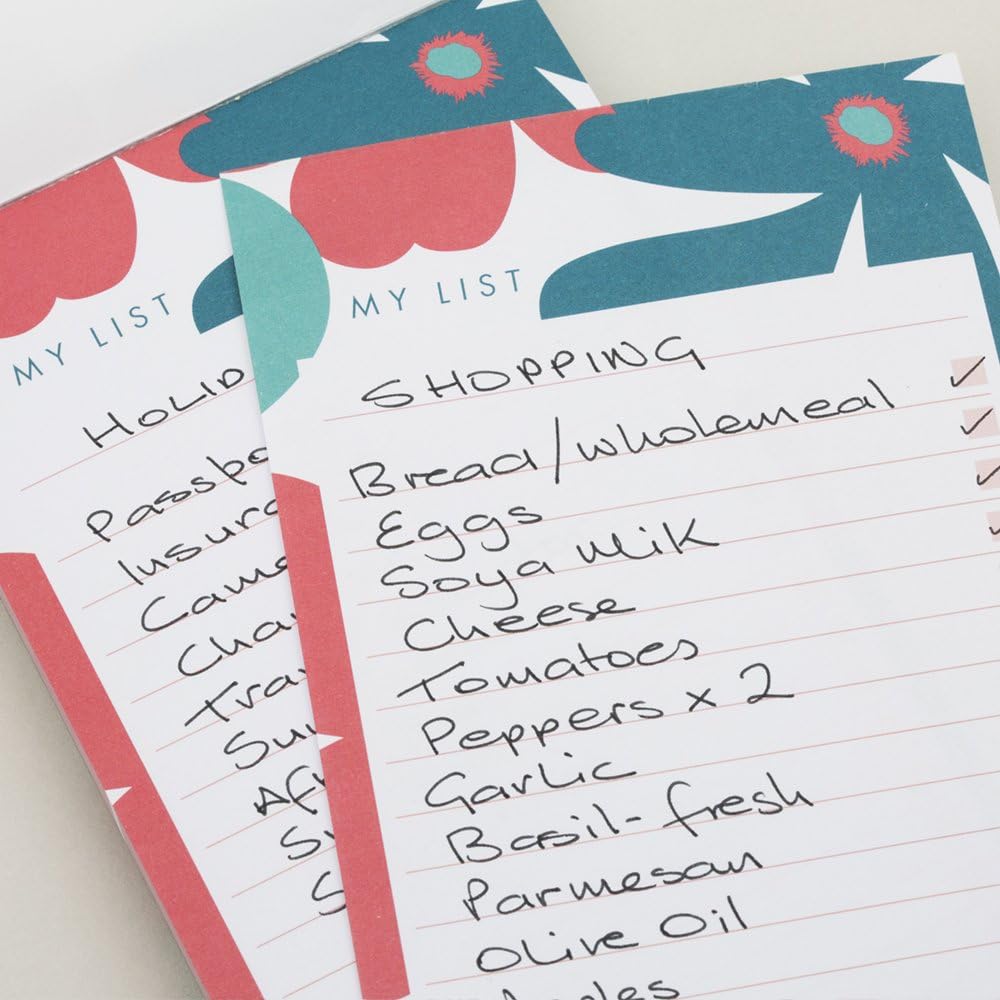 MY LIST
HOLID
Passpo
Insura
Came
Cha
Trav
Sun
Aft
S
MY LIST
SHOPPING
Bread/wholemeal
Eggs
Soya milk
Cheese
Tomatoes
Peppers x 2
Garlic
Basil - fresh
Parmesan
Olive Oil